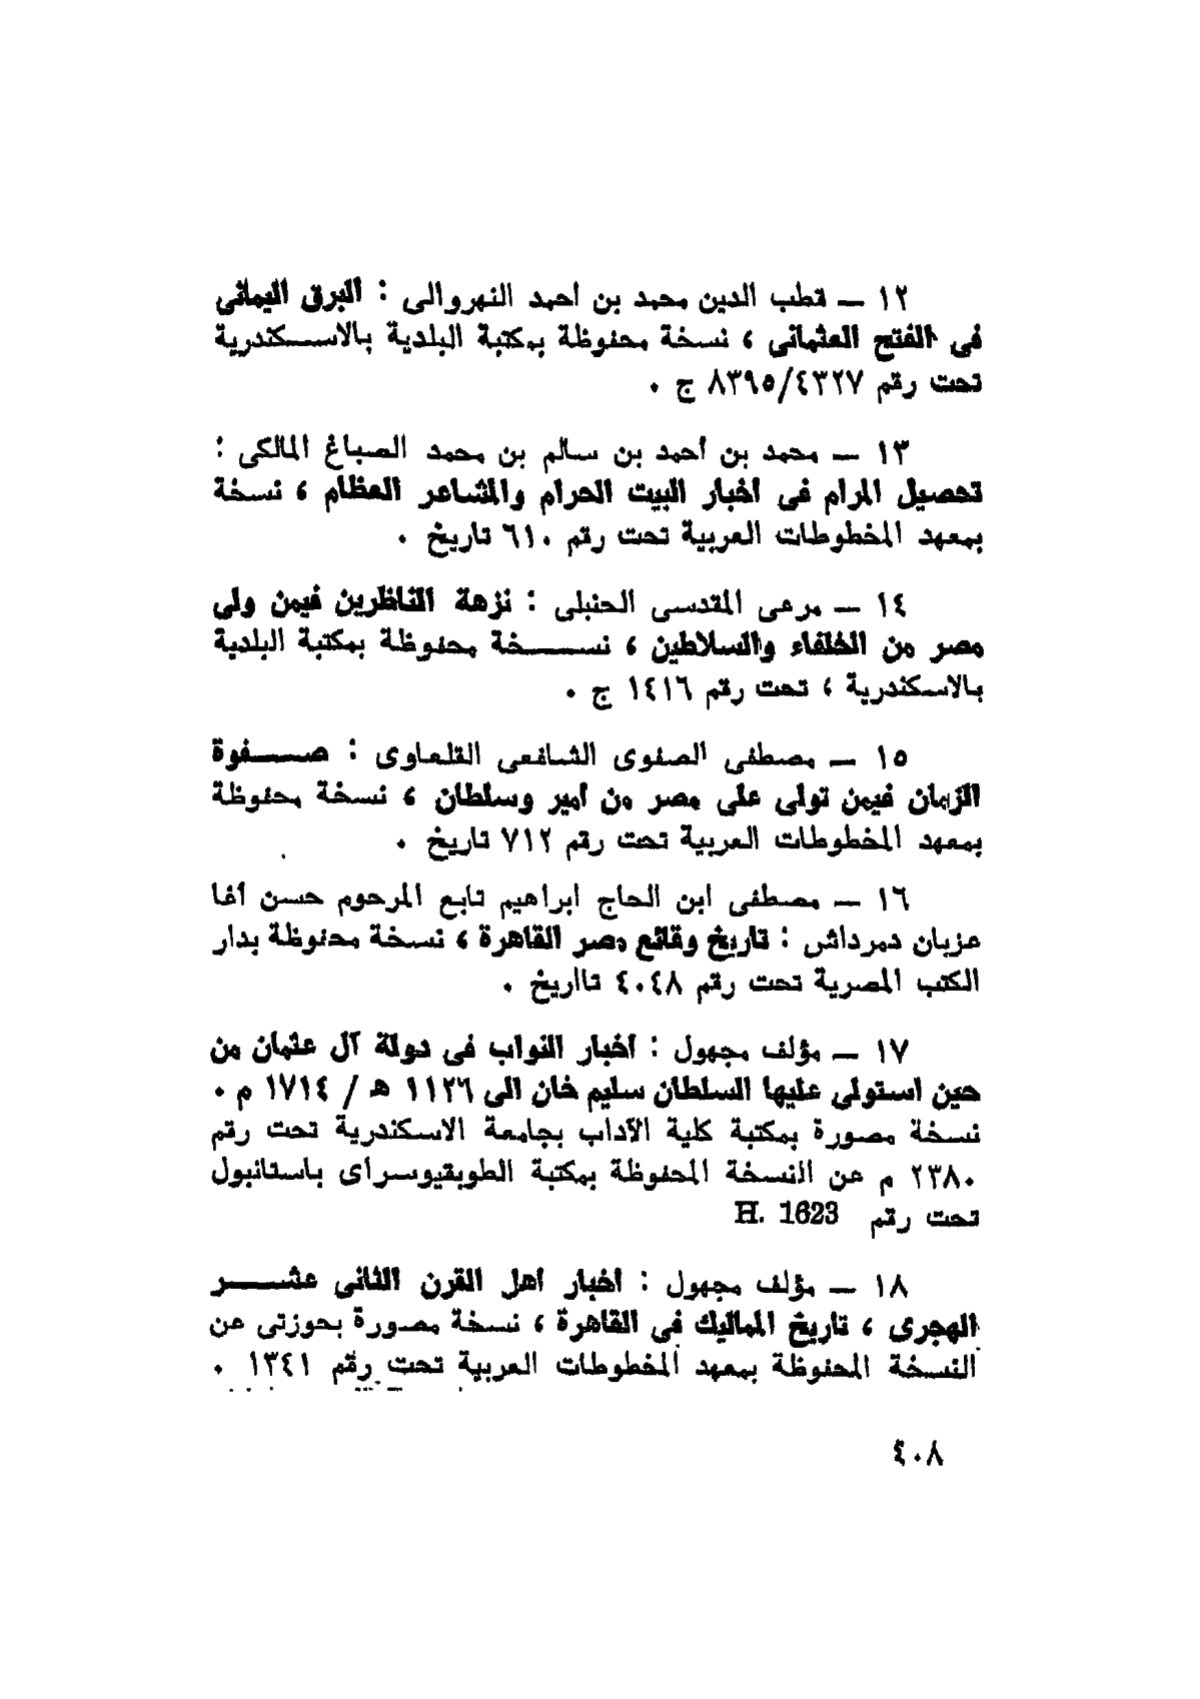 ١٢ — قطب الدين محمد بن احمد النهروالى : البرق اليمانى
فى الفتح العثمانى ، نسخة محفوظة بمكتبة البلدية بالاسكندرية
تحت رقم ٨٣٩٥/٤٣٢٧ ج ٠
١٣ — محمد بن أحمد بن سالم بن محمد الصباغ المالكى :
تحصيل المرام فى اخبار البيت الحرام والمشاعر العظام ، نسخة
بمعهد المخطوطات العربية تحت رقم ٦١٠ تاريخ ٠
١٤ — مرعى المقدسى الحنبلى : نزهة الناظرين فيمن ولى
مصر من الخلفاء والسلاطين ، نسخة محفوظة بمكتبة البلدية
بالاسكندرية ، تحت رقم ١٤١٦ ج ٠
١٥ — مصطفى الصفوى الشافعى القلعاوى : صفوة
الزمان فيمن تولى على مصر من أمير وسلطان ، نسخة محفوظة
بمعهد المخطوطات العربية تحت رقم ٧١٢ تاريخ ٠
١٦ — مصطفى ابن الحاج ابراهيم تابع المرحوم حسن أغا
عزبان دمرداش : تاريخ وقائع مصر القاهرة ، نسخة محفوظة بدار
الكتب المصرية تحت رقم ٤٠٤٨ تااريخ ٠
١٧ — مؤلف مجهول : أخبار النواب فى دولة آل عثمان من
حين استولى عليها السلطان سليم خان الى ١١٢٦ هـ / ١٧١٤ م ٠
نسخة مصورة بمكتبة كلية الآداب بجامعة الاسكندرية تحت رقم
٢٣٨٠ م عن النسخة المحفوظة بمكتبة الطوبقيوسراى باستانبول
تحت رقم H. 1623
١٨ — مؤلف مجهول : أخبار أهل القرن الثانى عشر
الهجرى ، تاريخ المماليك فى القاهرة ، نسخة مصورة بحوزتى عن
النسخة المحفوظة بمعهد المخطوطات العربية تحت رقم ١٣٤١ ٠
٤٠٨